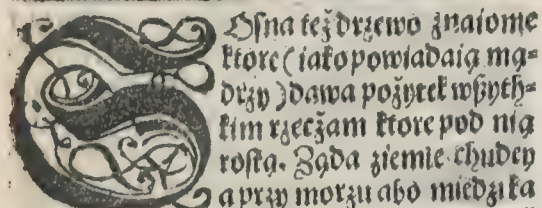 SOſna też drzewo znáiome
ktore ( iáko powiadáią mą=
drzy ) dawa pożytek wßyth=
kim rzecżam ktore pod nią
roſtą. Ząda ziemie chudey
á przy morzu ábo miedzi ká